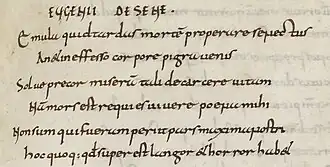 EUGENII DE SENE.
Emula quid tardus mortē properare senectus
An & in effesso corpore pigra venis
Solue precor miserum tali de carcere uitam
Nā mors est requies uiuere poena mihi
Non sum qui fueram periit pars maxima nostri
hoc quoq: qd super est langor & horror hab&